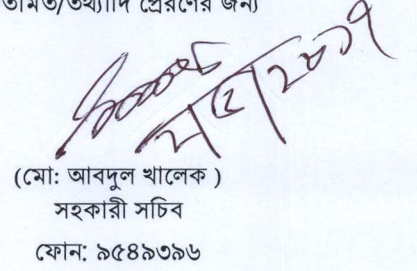 তামত/তথ্যাদি প্রেরণের জন্য
(মো: আবদুল খালেক )
সহকারী সচিব
ফোন: ৯৫৪৯৩৯৬